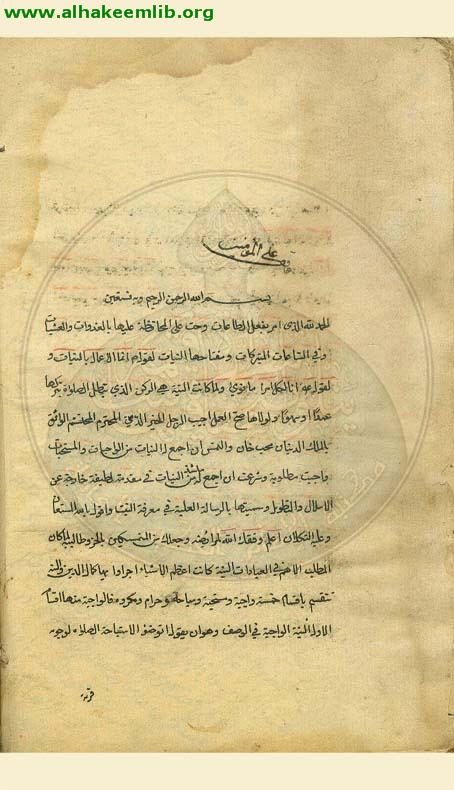 www.alhakeemlib.org
بسم الله الرحمن الرحيم وبه نستعين
الحمد لله الذى امر بفعل الطاعات وحث على المحافظة عليها بالغدوات والعشيات
وفي الساعات المتبركات ومفتاحها النيات لقوله انما الاعمال بالنيات و
لقوله انما لكل امرء ما نوى ولما كانت النية هي الركن الذي تبطل الصلوة بتركها
عمدا وسهوا ولولاها صح العمل اجيب الرجل الخير الذمي المحترم المحتشم الواثق
بالملك الديان محب خان والتمس ان اجمع له النيات من الواجبات والمستحبات
واجبت مطلوبه وشرعت ان اجمع له النيات في مقدمة لطيفة خارجة عن
الاملال والتطويل وسميتها بالرسالة العلية في معرفة النية واقول بالله المستعان
وعليه التكلان اعلم وفقك الله لمراضيه وجعلك من المتمسكين
المطلب الاهم في العبادات النية كانت اعظم الاشياء اجرا وبها كمال الدين والنية
تنقسم باقسام خمسة واجبة ومستحبة ومباحة وحرام ومكروه فالواجبة منها اقسام
الاول النية الواجبة في الوصف وهو ان يقول اتوضؤ لاستباحة الصلوة لوجوبه
قربة